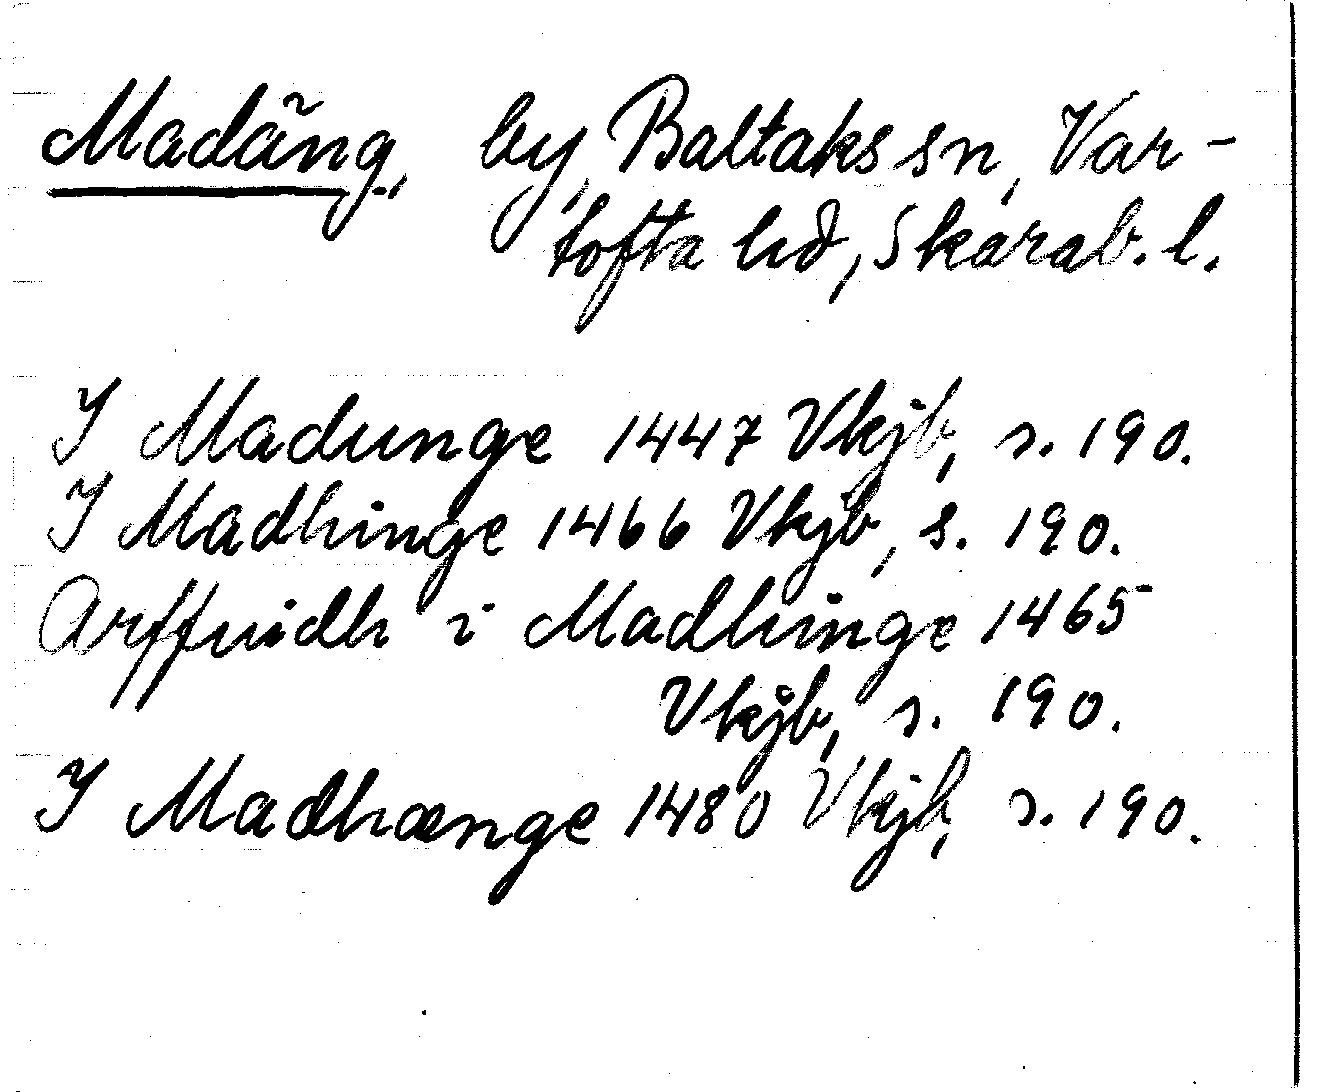 Madäng, by, Baltaks sn, Var-
tofta hd, Skarab. l.
I Madunge 1447 Vkjb, s. 190.
I Madhinge 1466 Vkjb, s. 190.
Arffuidh i Madhinge 1465
Vkjb, s. 190.
I Madhænge 1480 Vkjb, s. 190.